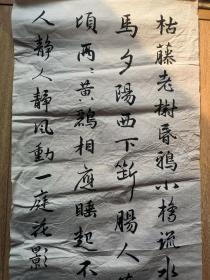 枯藤老樹昏鴉小橋流水
馬夕陽西下斷腸人
頃兩〻黄鸝相應睡起不
人靜人靜風動一庭花影